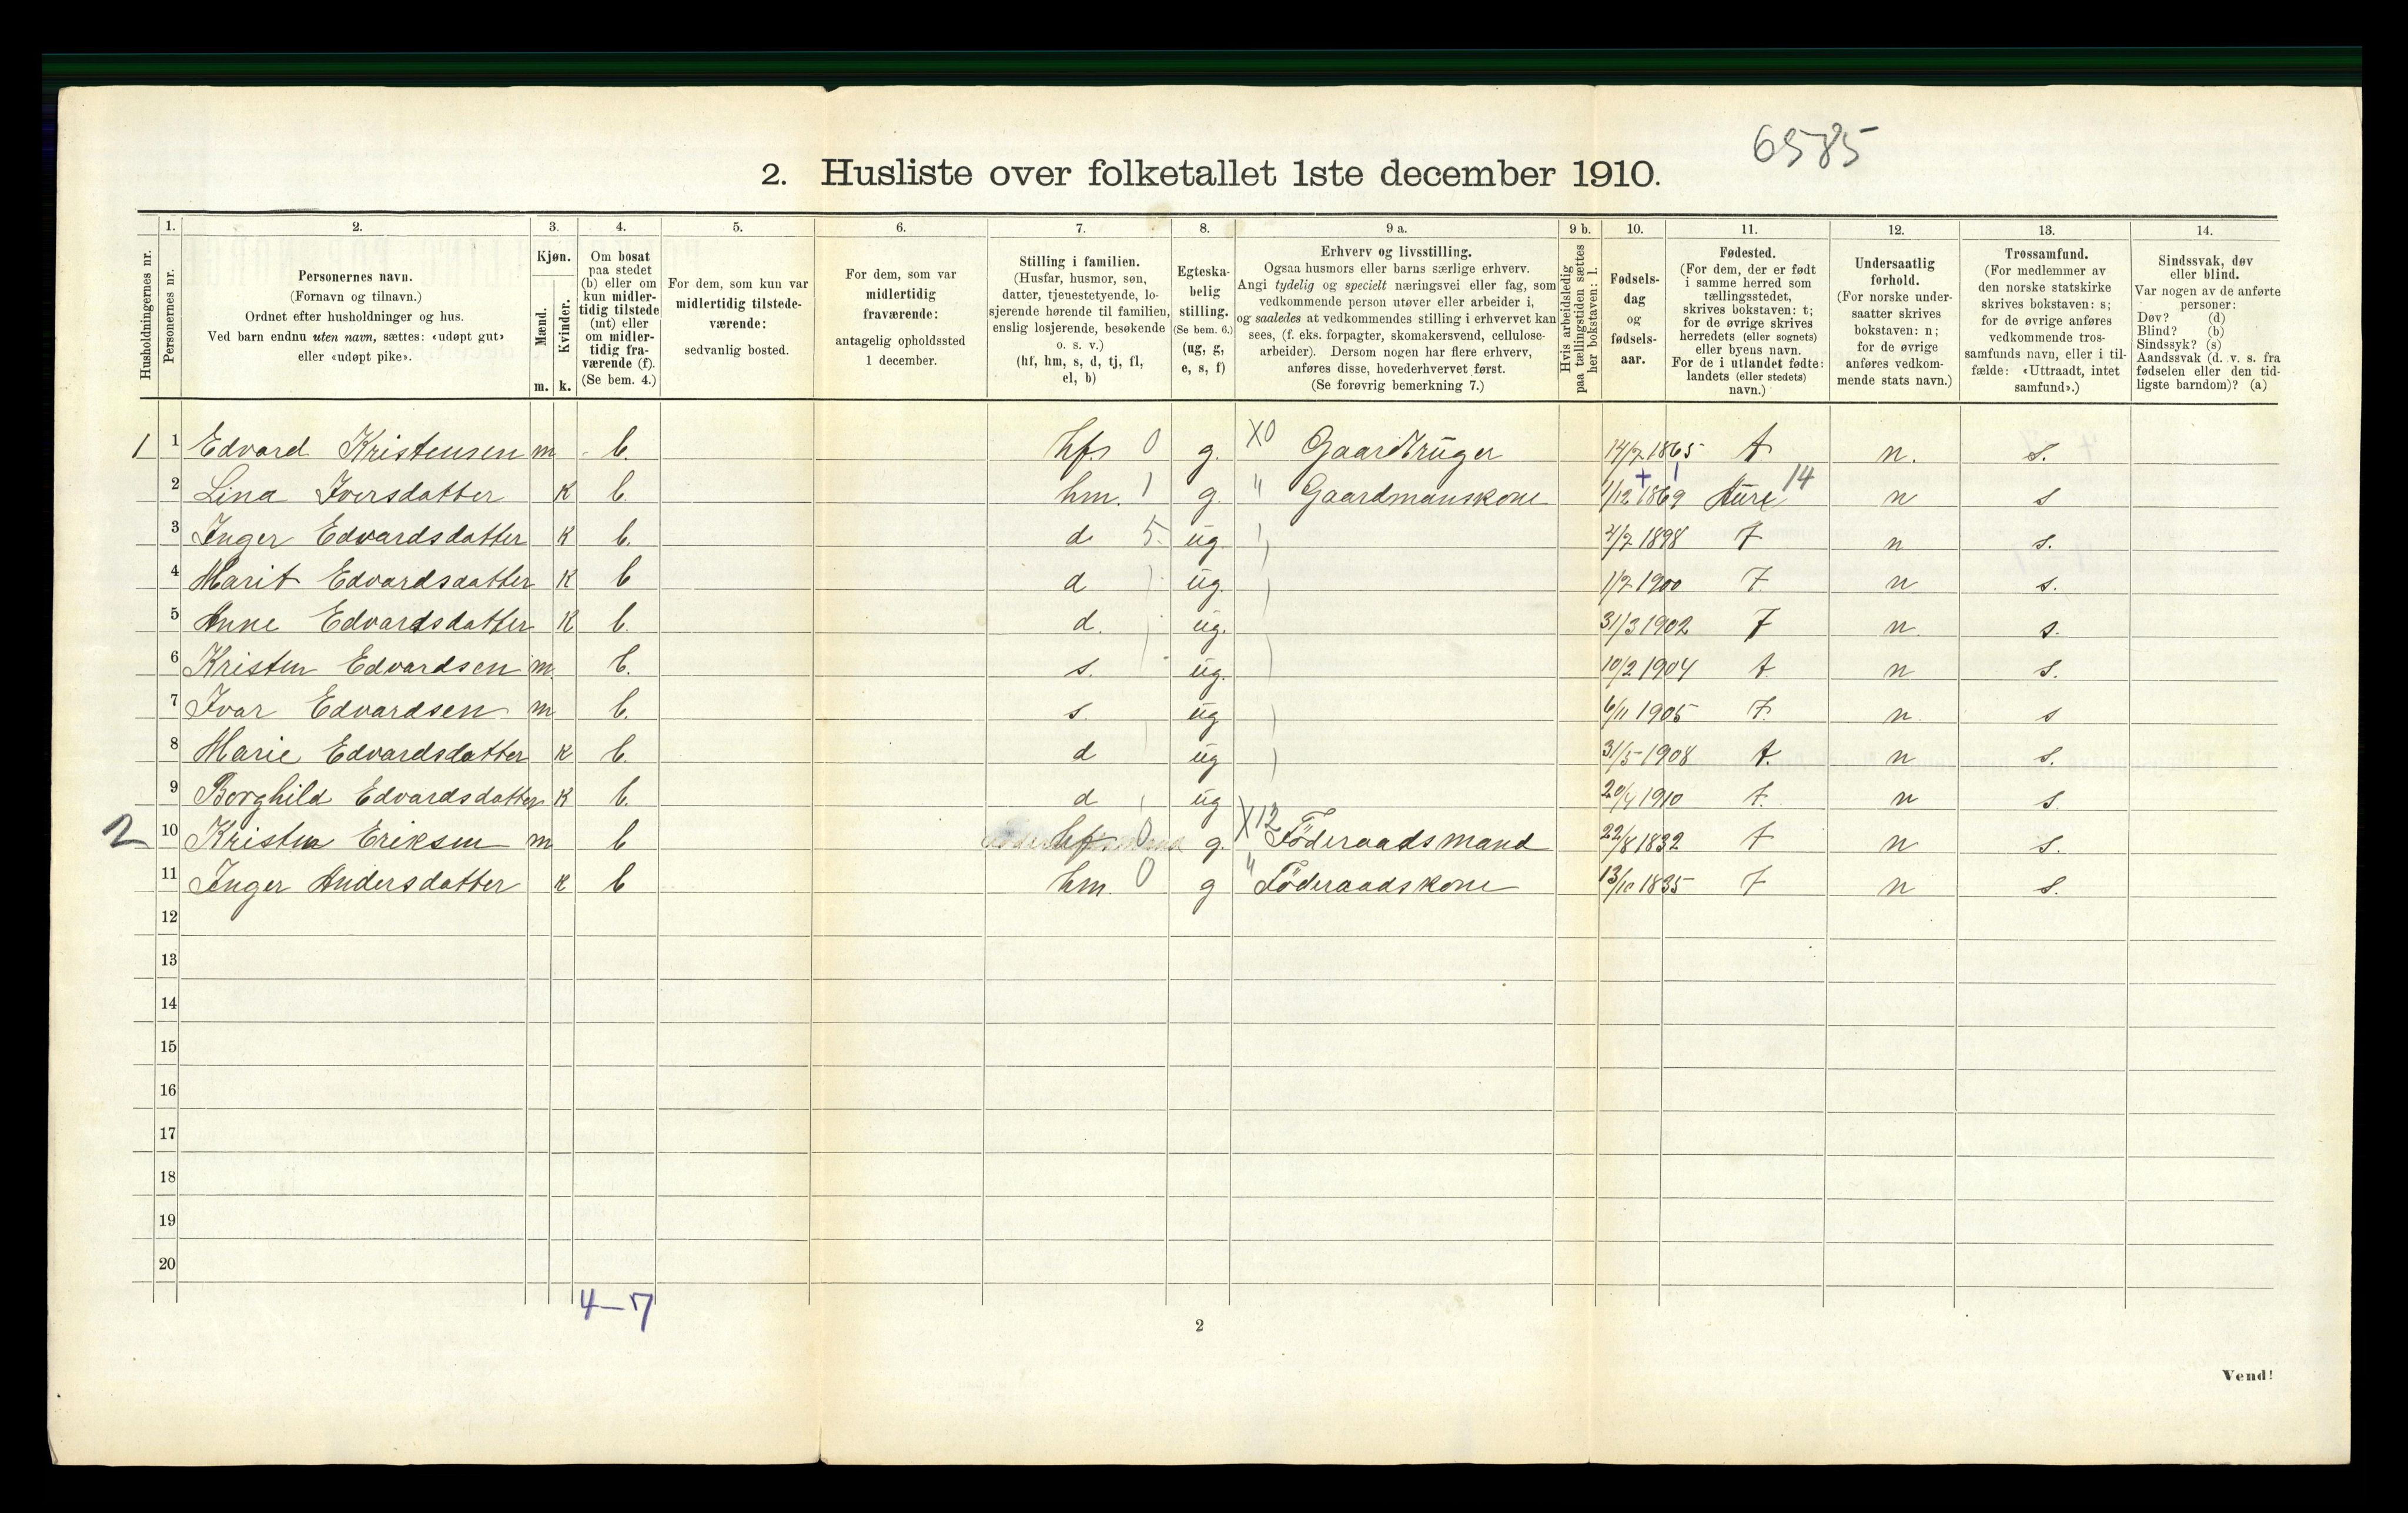 6585
2. Husliste over folketallet 1ste december 1910.
Husholdningernes nr.
1. Personernes nr.
2. Personernes navn. (Fornavn og tilnavn.) Ordnet efter husholdninger og hus. Ved barn endnu uten navn, sættes: «udøpt gut» eller «udøpt pike».
3. Kjøn. Mænd. m. Kvinder. k.
4. Om bosat paa stedet (b) eller om kun midlertidig tilstede (mt) eller om midlertidig fraværende (f). (Se bem. 4.)
5. For dem, som kun var midlertidig tilstedeværende: sedvanlig bosted.
6. For dem, som var midlertidig fraværende: antagelig opholdssted 1 december.
7. Stilling i familien. (Husfar, husmor, søn, datter, tjenestetyende, losjerende hørende til familien, enslig losjerende, besøkende o. s. v.) (hf, hm, s, d, tj, fl, el, b)
8. Egteskabelig stilling. (Se bem. 6.) (ug, g, e, s, f)
9 a. Erhverv og livsstilling. Ogsaa husmors eller barns særlige erhverv. Angi tydelig og specielt næringsvei eller fag, som vedkommende person utøver eller arbeider i, og saaledes at vedkommendes stilling i erhvervet kan sees, (f. eks. forpagter, skomakersvend, cellulosearbeider). Dersom nogen har flere erhverv, anføres disse, hovederhvervet først. (Se forøvrig bemerkning 7.)
9 b. Hvis arbeidsledig paa tællingstiden sættes her bokstaven: l.
10. Fødselsdag og fødselsaar.
11. Fødested. (For dem, der er født i samme herred som tællingsstedet, skrives bokstaven: t; for de øvrige skrives herredets (eller sognets) eller byens navn. For de i utlandet fødte: landets (eller stedets) navn.)
12. Undersaatlig forhold. (For norske undersaatter skrives bokstaven: n; for de øvrige anføres vedkommende stats navn.)
13. Trossamfund. (For medlemmer av den norske statskirke skrives bokstaven: s; for de øvrige anføres vedkommende trossamfunds navn, eller i tilfælde: «Uttraadt, intet samfund».)
14. Sindssvak, døv eller blind. Var nogen av de anførte personer: Døv? (d) Blind? (b) Sindssyk? (s) Aandssvak (d. v. s. fra fødselen eller den tidligste barndom)? (a)
1 1 Edvard Kristensen m b. hf. 0 g. X0 Gaardbruger 14/7 1865 t n. s.
2 Lina Iversdatter k b. hm. 1 g. " Gaardmanskone 1/12 1869 Aure 14 n s
3 Inger Edvardsdatter k b. d 5. ug. 2/7 1898 t n s.
4 Marit Edvardsdatter k b d ug. 1/7 1900 t. n s.
5 Anne Edvardsdatter k b. d. ug. 31/3 1902 t n s.
6 Kristen Edvardsen m b. s. ug. 10/2 1904 t. n s.
7 Ivar Edvardsen m b. s. ug 6/11 1905 t. n. s
8 Marie Edvardsdatter k b. d ug 31/5 1908 t. n s.
9 Borghild Edvardsdatter k b. d ug 20/4 1910 t. n s.
2 10 Kristen Eriksen m b hf. 0 g. X12 Föderaadsmand 22/8 1832 t n s.
11 Inger Andersdatter k b hm. 0 g " Föderaadskone 13/10 1835 t n s.
12
13
14
15
16
17
18
19
20
4—7
2
Vend!